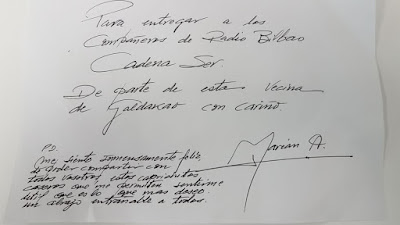 Para entregar a los
Compañeros de Radio Bilbao
Cadena Ser.
De parte de esta Vecina
de Galdakao con cariño.
Marian A.
P.D.
Me siento inmensamente feliz,
de poder compartir con
todos vosotros estos
caseros que me permiten sentirme
útil que es lo que mas deseo
un abrazo entrañable a todos.